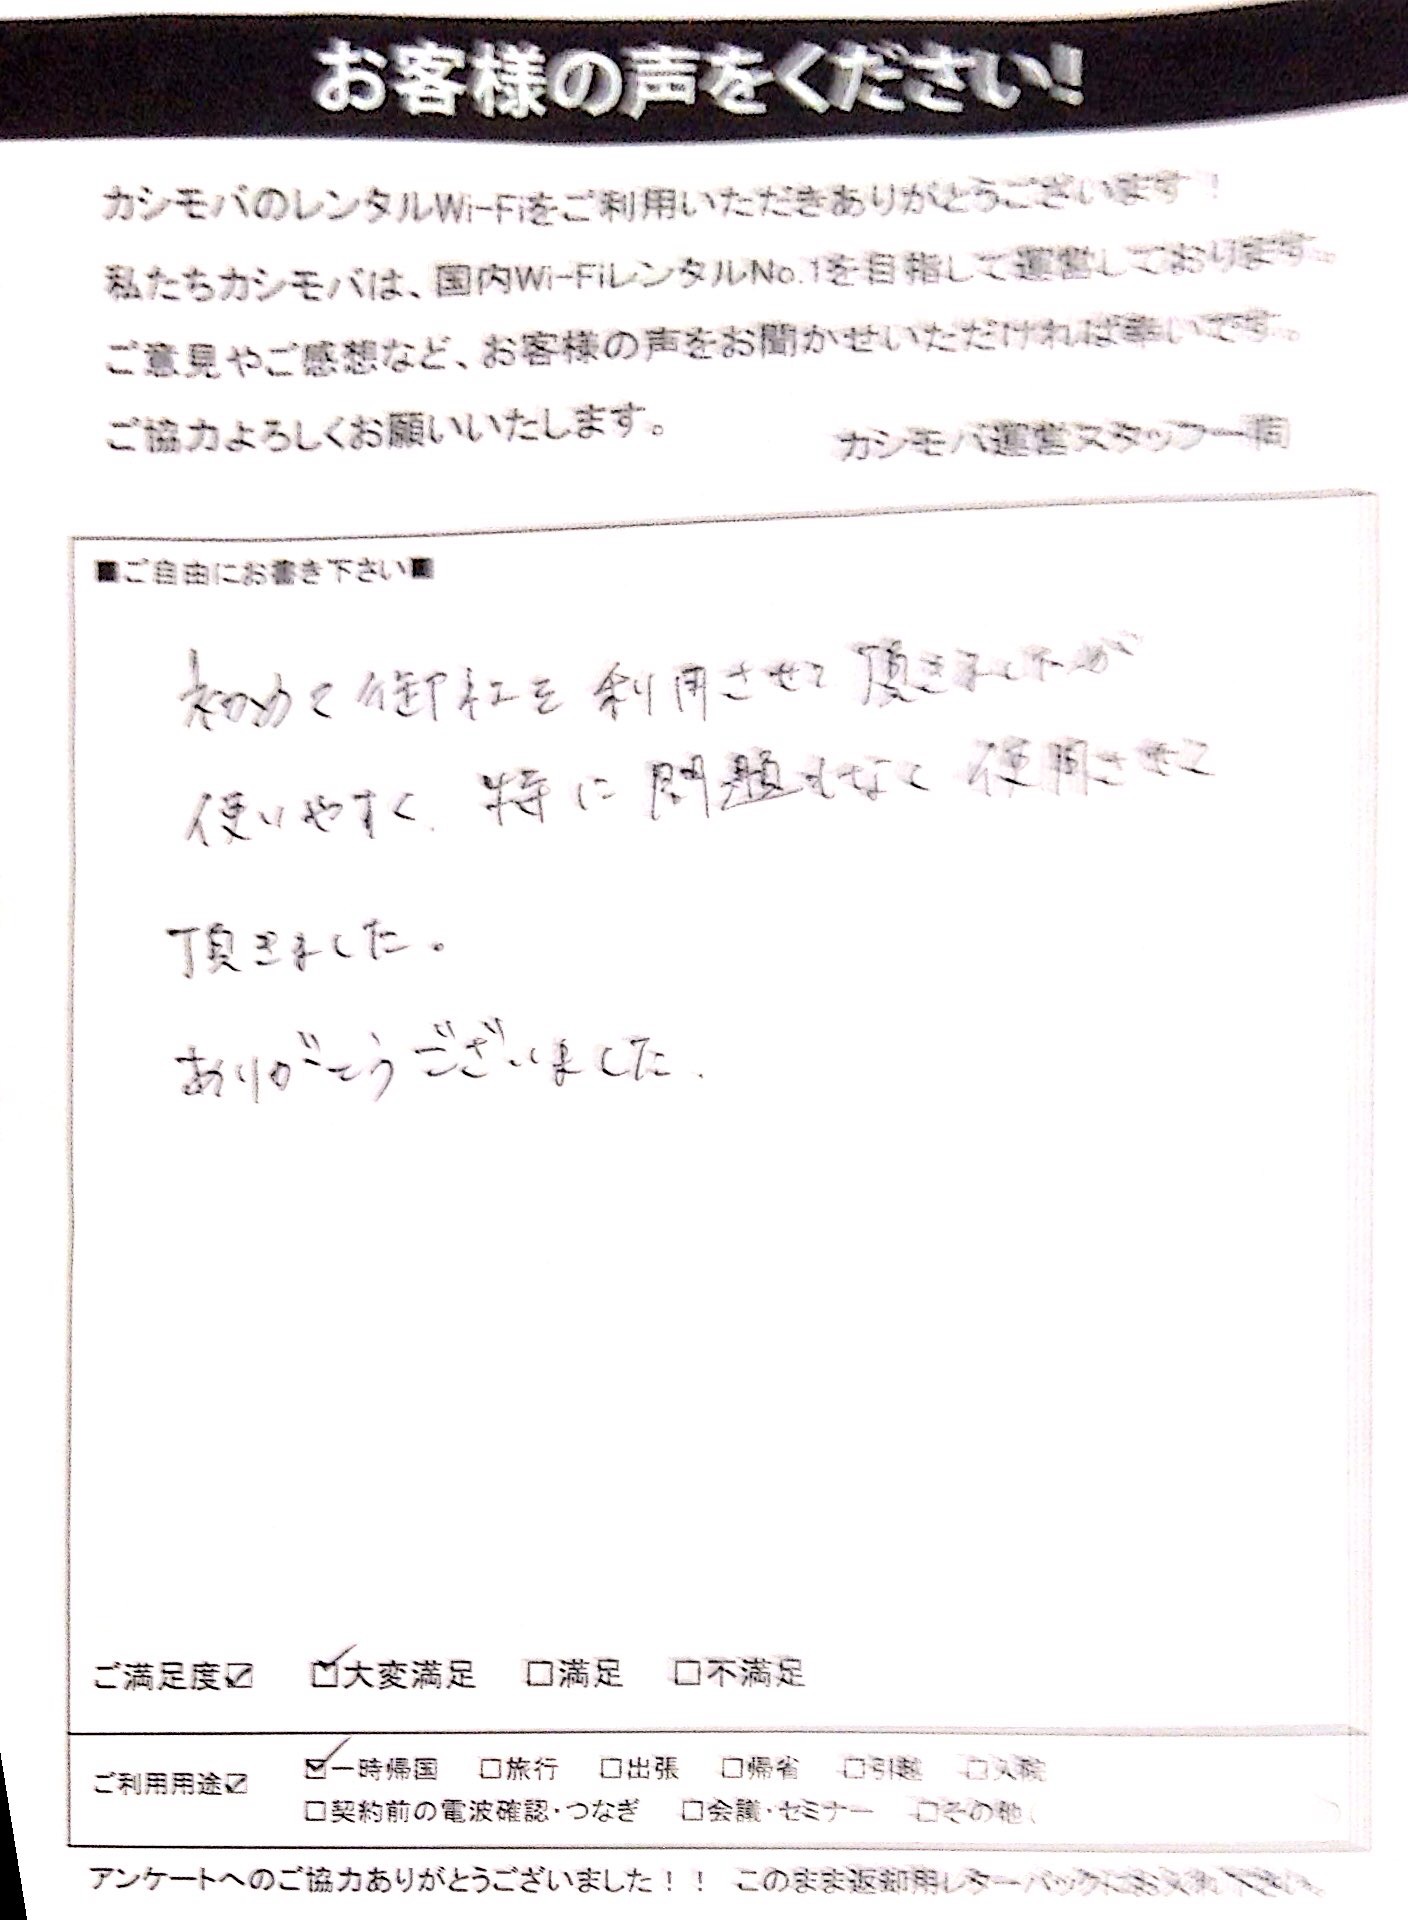 お客様の声をください!
カシモバのレンタルWi-Fiをご利用いただきありがとうございます!
私たちカシモバは、国内Wi-FiレンタルNo.1を目指して運営しております。
ご意見やご感想など、お客様の声をお聞かせいただければ幸いです。
ご協力よろしくお願いいたします。
カシモバ運営スタッフ一同
■ご自由にお書き下さい■
初めて御社を利用させて頂きましたが
使いやすく、特に問題もなく使用させて
頂きました。
ありがとうございました.
ご満足度☑ ☑大変満足 □満足 □不満足
ご利用用途☑ ☑一時帰国 □旅行 □出張 □帰省 □引越 □入院
□契約前の電波確認・つなぎ □会議・セミナー □その他( )
アンケートへのご協力ありがとうございました!! このまま返却用レターパックにお入れ下さい。